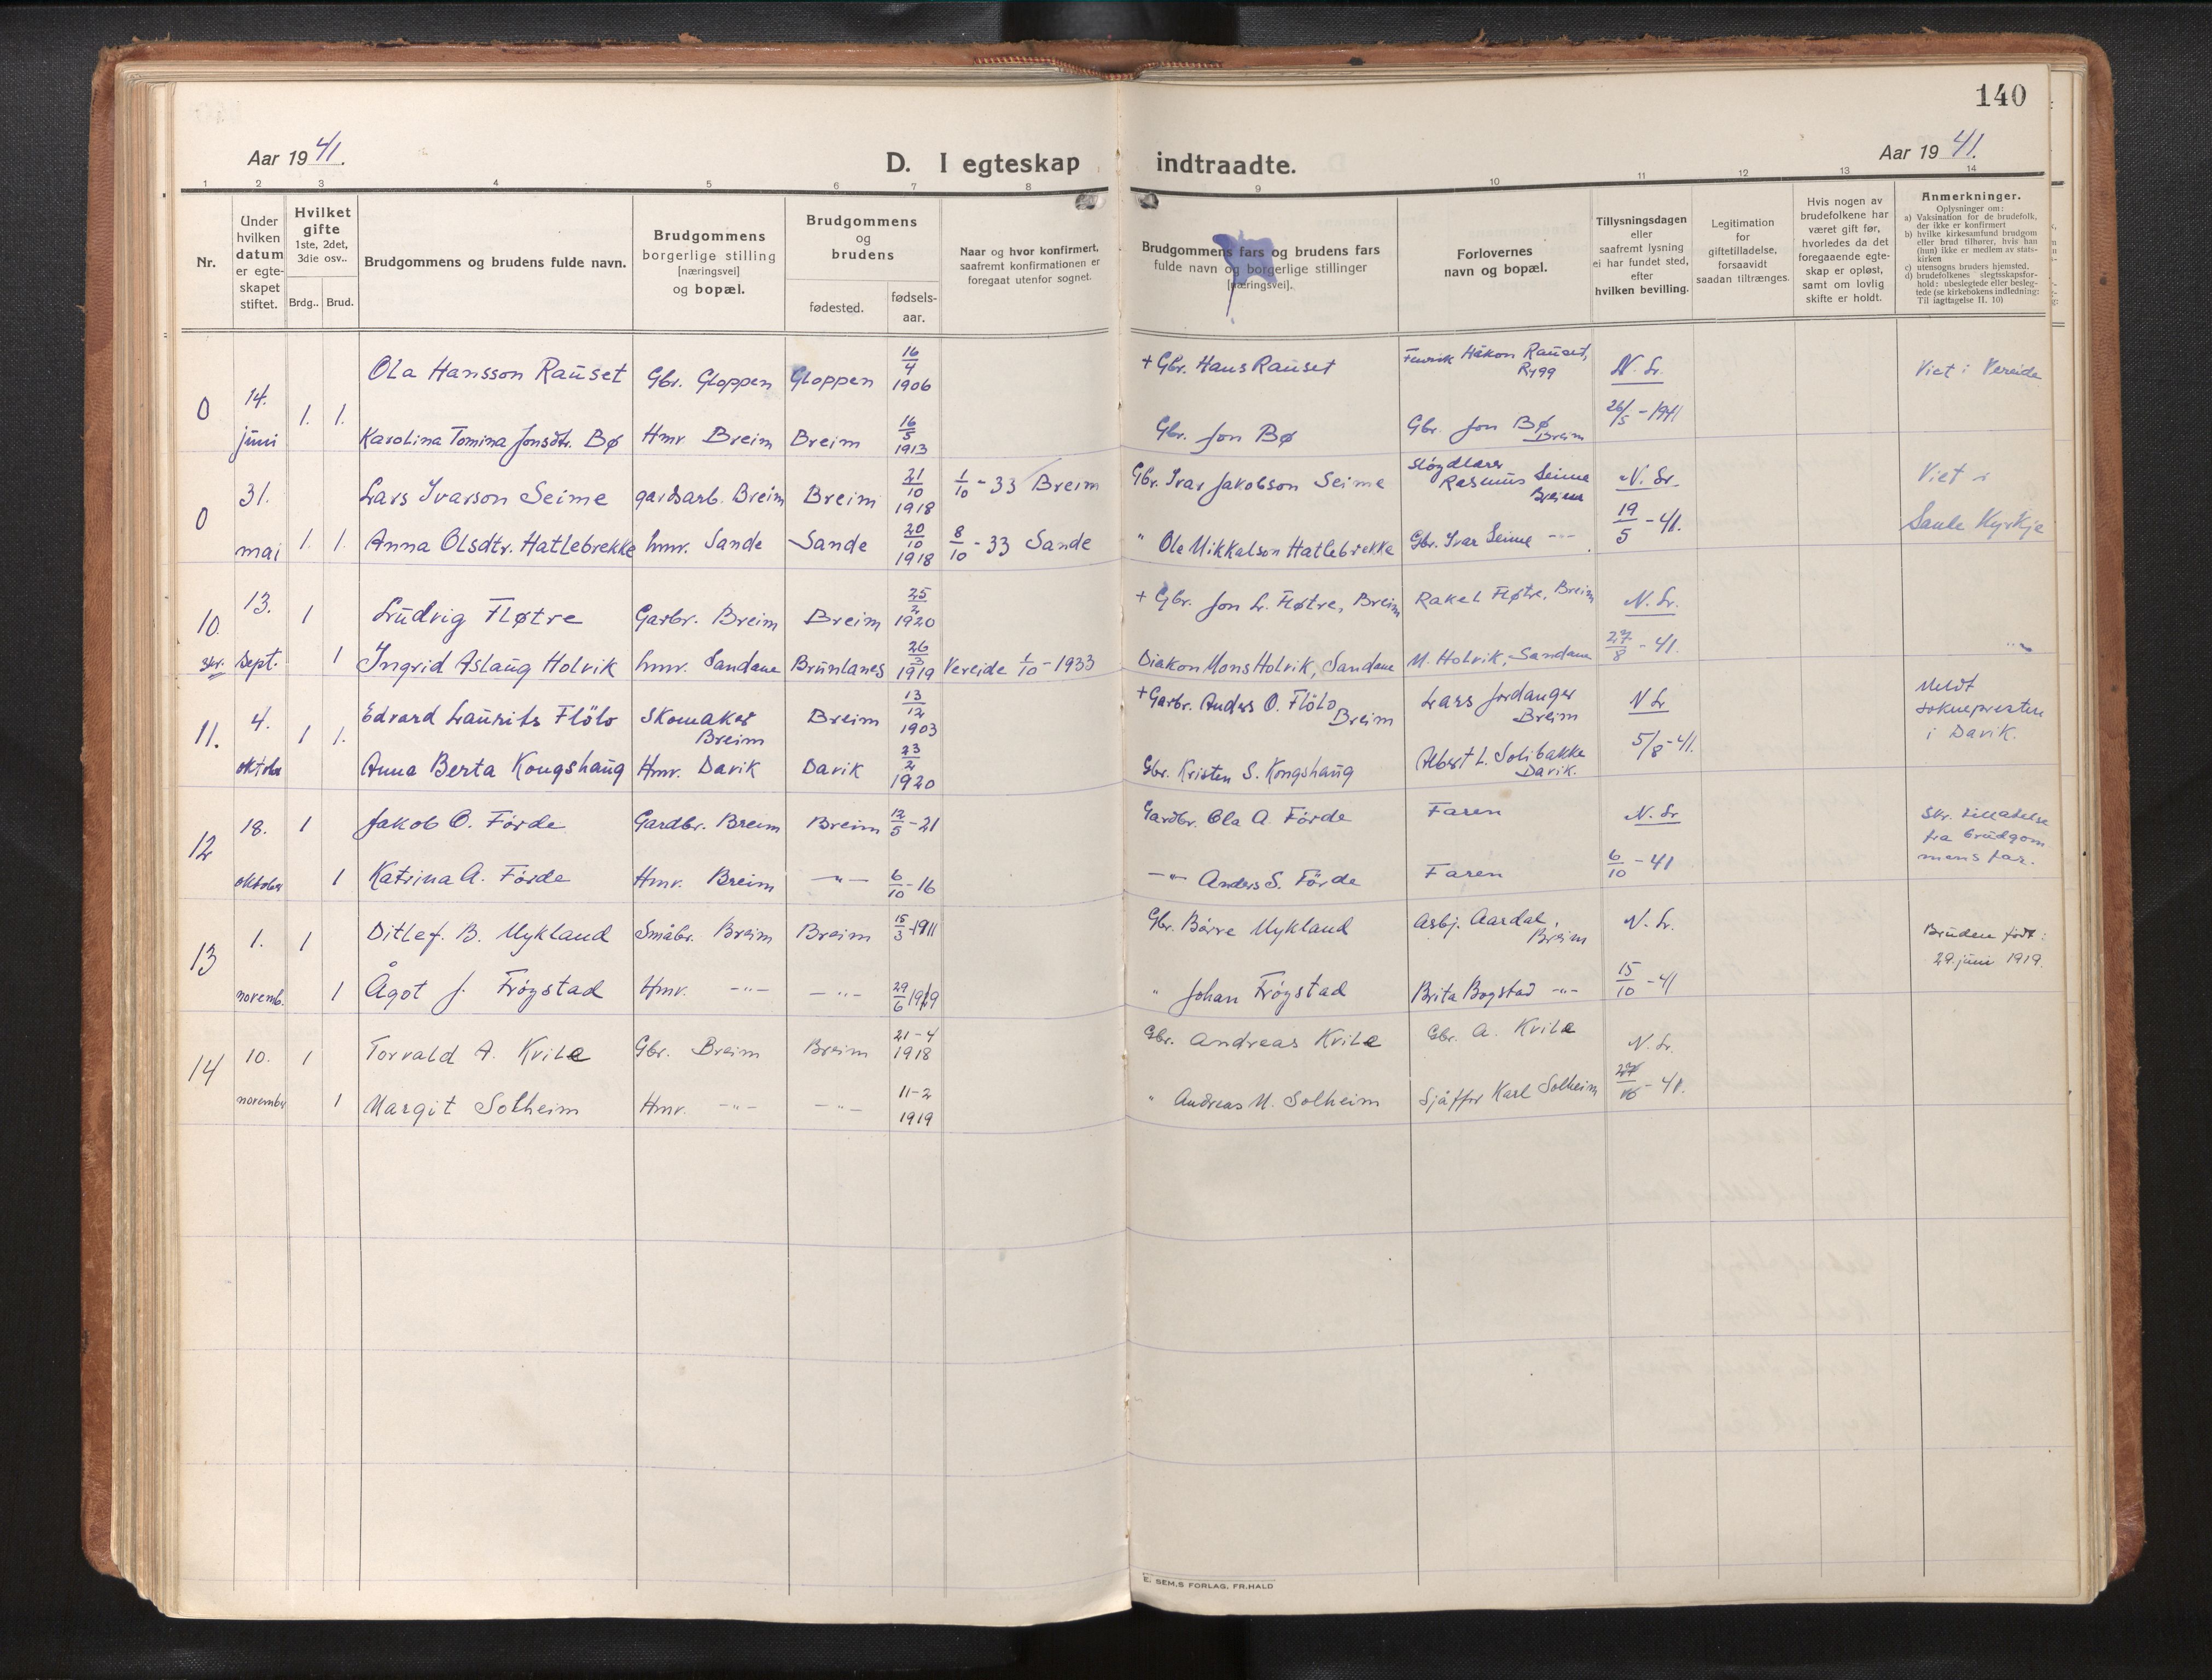 140
Aar 1941.
D. I egteskap indtraadte.
Aar 1941.
1 2 3 4 5 6 7 8 9 10 11 12 13 14
Nr.
Under hvilken datum er egte-skapet stiftet.
Hvilket gifte 1ste, 2det, 3die osv..
Brdg.. Brud.
Brudgommens og brudens fulde navn.
Brudgommens borgerlige stilling [næringsvei] og bopæl.
Brudgommens og brudens
fødested.
fødsels-aar.
Naar og hvor konfirmert, saafremt konfirmationen er foregaat utenfor sognet.
Brudgommens fars og brudens fars fulde navn og borgerlige stillinger [næringsvei].
Forlovernes navn og bopæl.
Tillysningsdagen eller saafremt lysning ei har fundet sted, efter hvilken bevilling.
Legitimation for giftetilladelse, forsaavidt saadan tiltrænges.
Hvis nogen av brudefolkene har været gift før, hvorledes da det foregaaende egte-skap er opløst, samt om lovlig skifte er holdt.
Anmerkninger.
Oplysninger om:
a) Vaksination for de brudefolk, der ikke er konfirmert
b) hvilke kirkesamfund brudgom eller brud tilhører, hvis han (hun) ikke er medlem av stats-kirken
c) utensogns bruders hjemsted.
d) brudefolkenes slegtsskapsfor-hold: ubeslegtede eller besleg-tede (se kirkebokens indledning: Til iagttagelse II. 10)
0 14. juni 1. 1.
Ola Hansson Rauset Gbr. Gloppen Gloppen 16/4 1906 + Gbr. Hans Rauset Håkon Rauset, Rygg N. Lr. Viet i Vereide
Karolina Tomina Jonsdtr. Bø Hmv. Breim Breim 16/5 1913 Gbr. Jon Bø Gbr. Jon Bø Breim 26/5 - 1941
0 31. mai 1. 1.
Lars Ivarson Seime gardsarb. Breim Breim 21/10 1918 1/10 - 33 Breim Gbr. Ivar Jakobson Seime Sløydlærer Rasmus Seime Breim N. Lr. Viet i
Anna Olsdtr. Hatlebrekke hmv. Sande Sande 20/10 1918 8/10 - 33 Sande " Ole Mikkalson Hatlebrekke Gbr. Ivar Seime -"- 19/5 - 41. Sande Kyrkje
10. 13. sept. 1 1
Ludvig Fløtre Garbr. Breim Breim 25/2 1920 + Gbr. Jon L. Fløtre, Breim Rakel Fløtre, Breim N. Lr.
Ingrid Aslaug Holvik hmv. Sandane Brunlanes 26/3 1919 Vereide 1/10 - 1933 Diakon Mons Holvik, Sandane M. Holvik, Sandane 27/8 - 41.
11. 4. oktober 1 1.
Edvard Laurits Flölo Skomaker Breim Breim 13/12 1903 + Garbr. Anders O. Flölo Breim Lars Jordanger Breim N Lr Meldt soknepresten i Davik.
Anna Berta Kongshaug Hmv. Davik Davik 23/2 1920 Gbr. Kristen S. Kongshaug Albert L. Solibakke Davik. 5/8 - 41.
12 18. oktober 1 1
Jakob O. Förde Gardbr. Breim Breim 12/5 - 21 Gardbr. Ola A. Förde Faren N. Lr Skr. tillatelse fra brudgommens far.
Katrina A. Förde Hmv. Breim -"- 6/10 - 16 -"- Anders S. Förde Faren 6/10 - 41
13 1. novemb. 1 1
Ditlef. B. Mykland Småbr. Breim Breim 15/3 - 1911 Gbr. Börre Mykland Asbj. Aardal, Breim N. Lr. Bruden født: 29. juni 1919.
Ågot J. Fröystad Hmv. -"- -"- 29/6 1919 " Johan Fröystad Brita Bogstad -"- 15/10 - 41
14 10. november 1 1
Torvald A. Kvile Gbr. Breim Breim 21-4 1918 Gbr. Andreas Kvile Gbr. A. Kvile N. Lr.
Margit Solheim Hmv. -"- -"- 11-2 1919 " Andreas M. Solheim Sjåffør Karl Solheim 27/10 - 41.
E. SEM,S FORLAG, FR.HALD